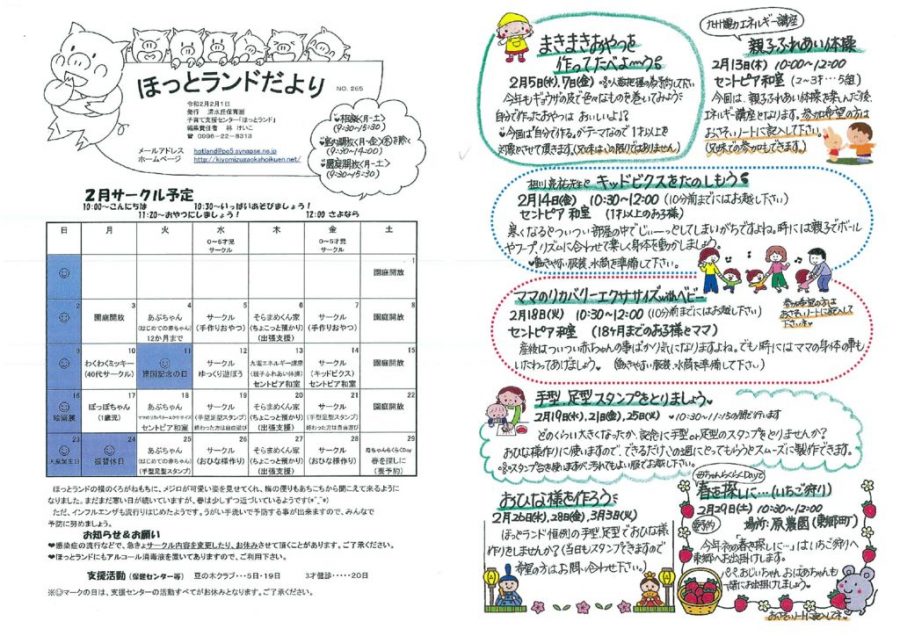 ほっとランドだより
NO. 265
令和2年2月1日
発行 清水丘保育園
子育て支援センター「ほっとランド」
編集責任者 林 けいこ
☎ 0996-22-8313
メールアドレス hotland@po5.synapse.ne.jp
ホームページ
♥相談(月~土)
(9:30~15:30)
♥室内開放(月~金)
(9:30~14:00)
♥園庭開放(月~土)
(9:30~15:30)
2月サークル予定
10:00~こんにちは 10:30~いっぱいあそびましょう!
11:20~おやつにしましょう! 12:00 さよなら
日 月 火 水 木 金 土
0~6才児 サークル
0~5才児 サークル
1
園庭開放
2 3 4 5 6 7 8
園庭開放
あぷちゃん (はじめての赤ちゃん) 12か月まで
サークル (手作りおやつ)
そらまめくん家 (ちょこっと預かり) (出張支援)
サークル (手作りおやつ)
園庭開放
9 10 11 12 13 14 15
わくわくミッキー (40代サークル)
建国記念の日
サークル ゆっくり遊ぼう
九電エネルギー講座 (親子ふれあい体操) セントピア和室
サークル (キッドビクス) セントピア和室
園庭開放
16 17 18 19 20 21 22
絵画展
ぽっぽちゃん (1歳児)
あぷちゃん
セントピア和室
サークル (手型足型スタンプ)
そらまめくん家 (ちょこっと預かり) (出張支援)
サークル (手型足型スタンプ)
園庭開放
23 24 25 26 27 28 29
天皇誕生日
振替休日
あぷちゃん (はじめての赤ちゃん) (手型足型スタンプ)
サークル (おひな様作り)
そらまめくん家 (ちょこっと預かり) (出張支援)
サークル (おひな様作り)
春を探しに (要予約)
ほっとランドの横のくろがねもちに、メジロが可愛い姿を見せてくれ、梅の便りもあちこちから聞こえて来るように
なりました。まだまだ寒い日が続いていますが、春は少しずつ近づいているようです(*^_^*)
ただ、インフルエンザも流行りはじめたようです。うがい手洗いで予防する事が出来ますので、みんなで
予防に努めましょう。
お知らせ&お願い
♥感染症の流行などで、急きょサークル内容を変更したり、お休みさせて頂くことがあります。ご了承ください。
♥ほっとランドにもアルコール消毒液を置いてありますので、ご利用下さい。
支援活動(保健センター等) 豆の木クラブ・・・5日・19日 3才健診・・・・・20日
※☺マークの日は、支援センターの活動すべてがお休みとなります。ご了承ください。
まきまきおやつを
作ってたべよ～う
2月5日(水),7日(金)
今年もギョウザの皮で色々なものを巻いてみよう!
自分で作ったおやつは おいしいよ!?
♥今回は「自分で作る」がテーマなので 1才以上を
対象とさせて頂きます。(兄姉はこの限りではありません)
九州電力エネルギー講座
親子ふれあい体操
2月13日(木) 10:00~12:00
セントピア和室 (2~3才…5組)
今回は、親子ふれあい体操を楽しんだ後、
エネルギー講座となります。参加希望の方は
おさそいノートに記入して下さい。
(兄姉での参加もできます。)
キッドビクスをたのしもう
2月14日(金) 10:30~12:00 (10分前までにはお越し下さい)
セントピア 和室 (1才以上のお子様)
寒くなるとついつい 部屋の中でじぃーっとしてしまいがちですよね。時には親子でボール
やフープ、リズムに合わせて楽しく身体を動かしましょう。
♥動きやすい服装、水筒を準備して下さい。
ママのリカバリーエクササイズwithベビー
2月18日(火) 10:30~12:00 (10分前までにはお越し下さい)
セントピア和室 (18ヶ月までのお子様とママ)
参加希望の方は
おさそいノートに記入して
下さいネ
産後はついつい赤ちゃんの事ばかり気になりますよね。でも時にはママの身体の事も
いたわってあげましょう。 (動きやすい服装、水筒を準備して下さい。)
手型、足型スタンプをとりましょう
2月19日(水),21日(金),25日(火) *10:30~11:15の間で行います
どのくらい大きくなったか、記念に手型or足型のスタンプをとりませんか?
おひな様作りに使いますので、できるだけこの週にとってもらうとスムーズに製作できます。
おひな様を作ろう
2月26日(水),28日(金),3月3日(火)
ほっとランド恒例の手型、足型でおひな様
作りをしませんか?(当日もスタンプできますので
希望の方はお問い合わせ下さい。)
春を探しに…(いちご狩り)
2月29日(土) 10:30~12:00
要予約
場所:原農園(東郷町)
今年初の「春を探しに…」はいちご狩りへ
東郷へお出掛けします。
パパ、おじいちゃん、おばあちゃんも
一緒にお出掛けしましょう。
おさそいノートに記入して下さい